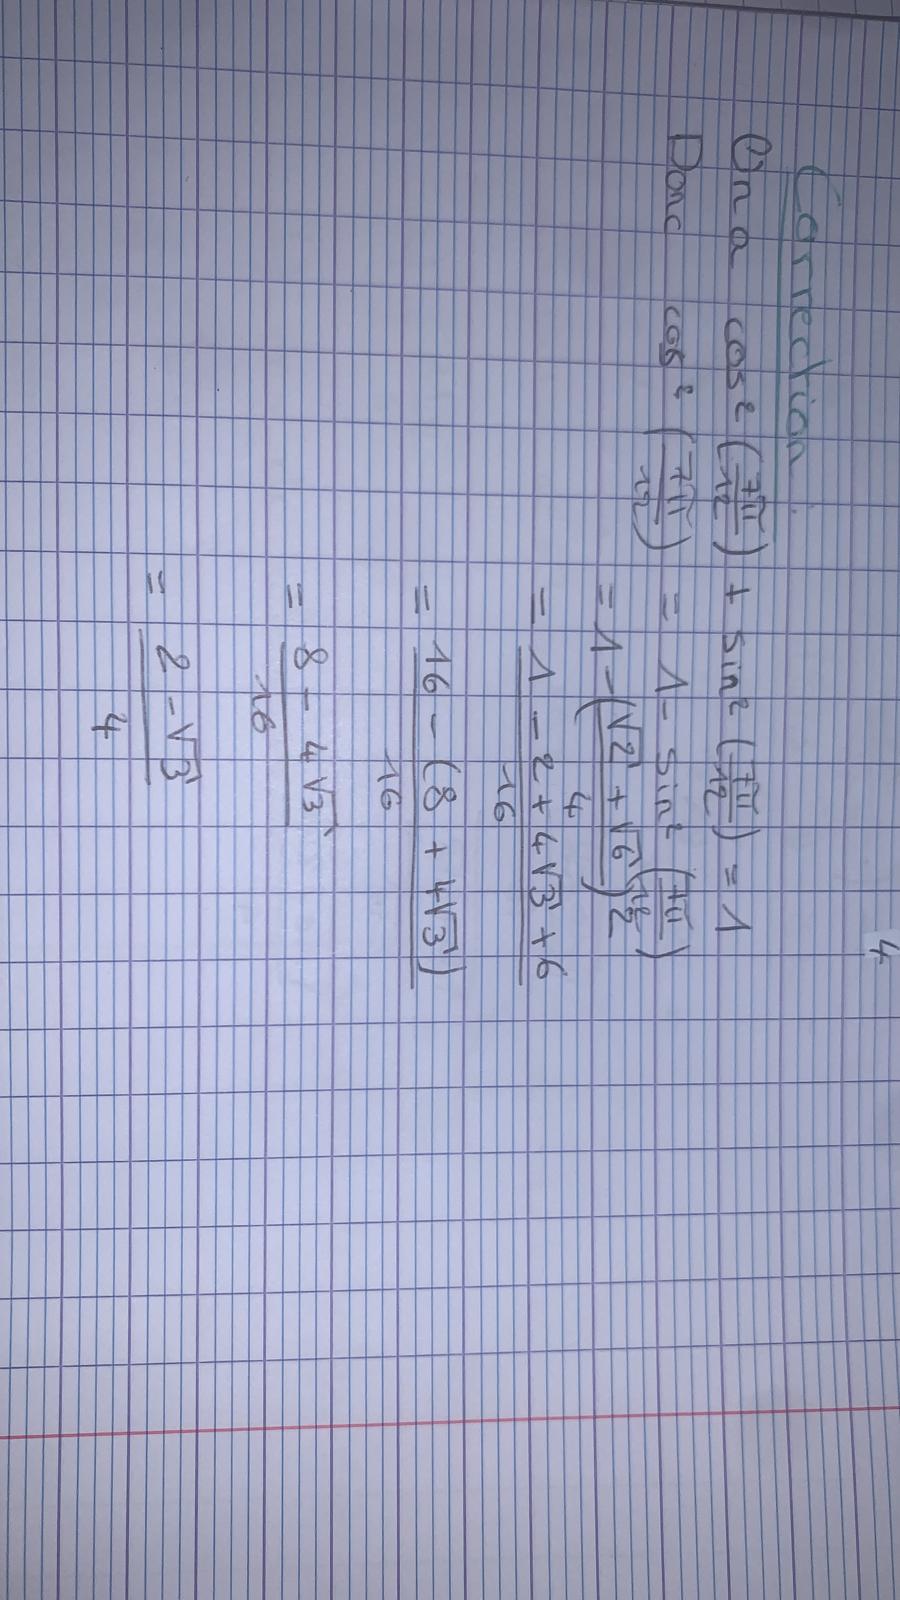 4
Correction
On a cos² (7π/12) + sin² (7π/12) = 1
Donc cos² (7π/12) = 1 - sin² (7π/12)
= 1 - ((√2 + √6)/4)²
= (1 - 2 + 4√3 + 6)/16
= (16 - (8 + 4√3))/16
= (8 - 4√3)/16
= (2 - √3)/4